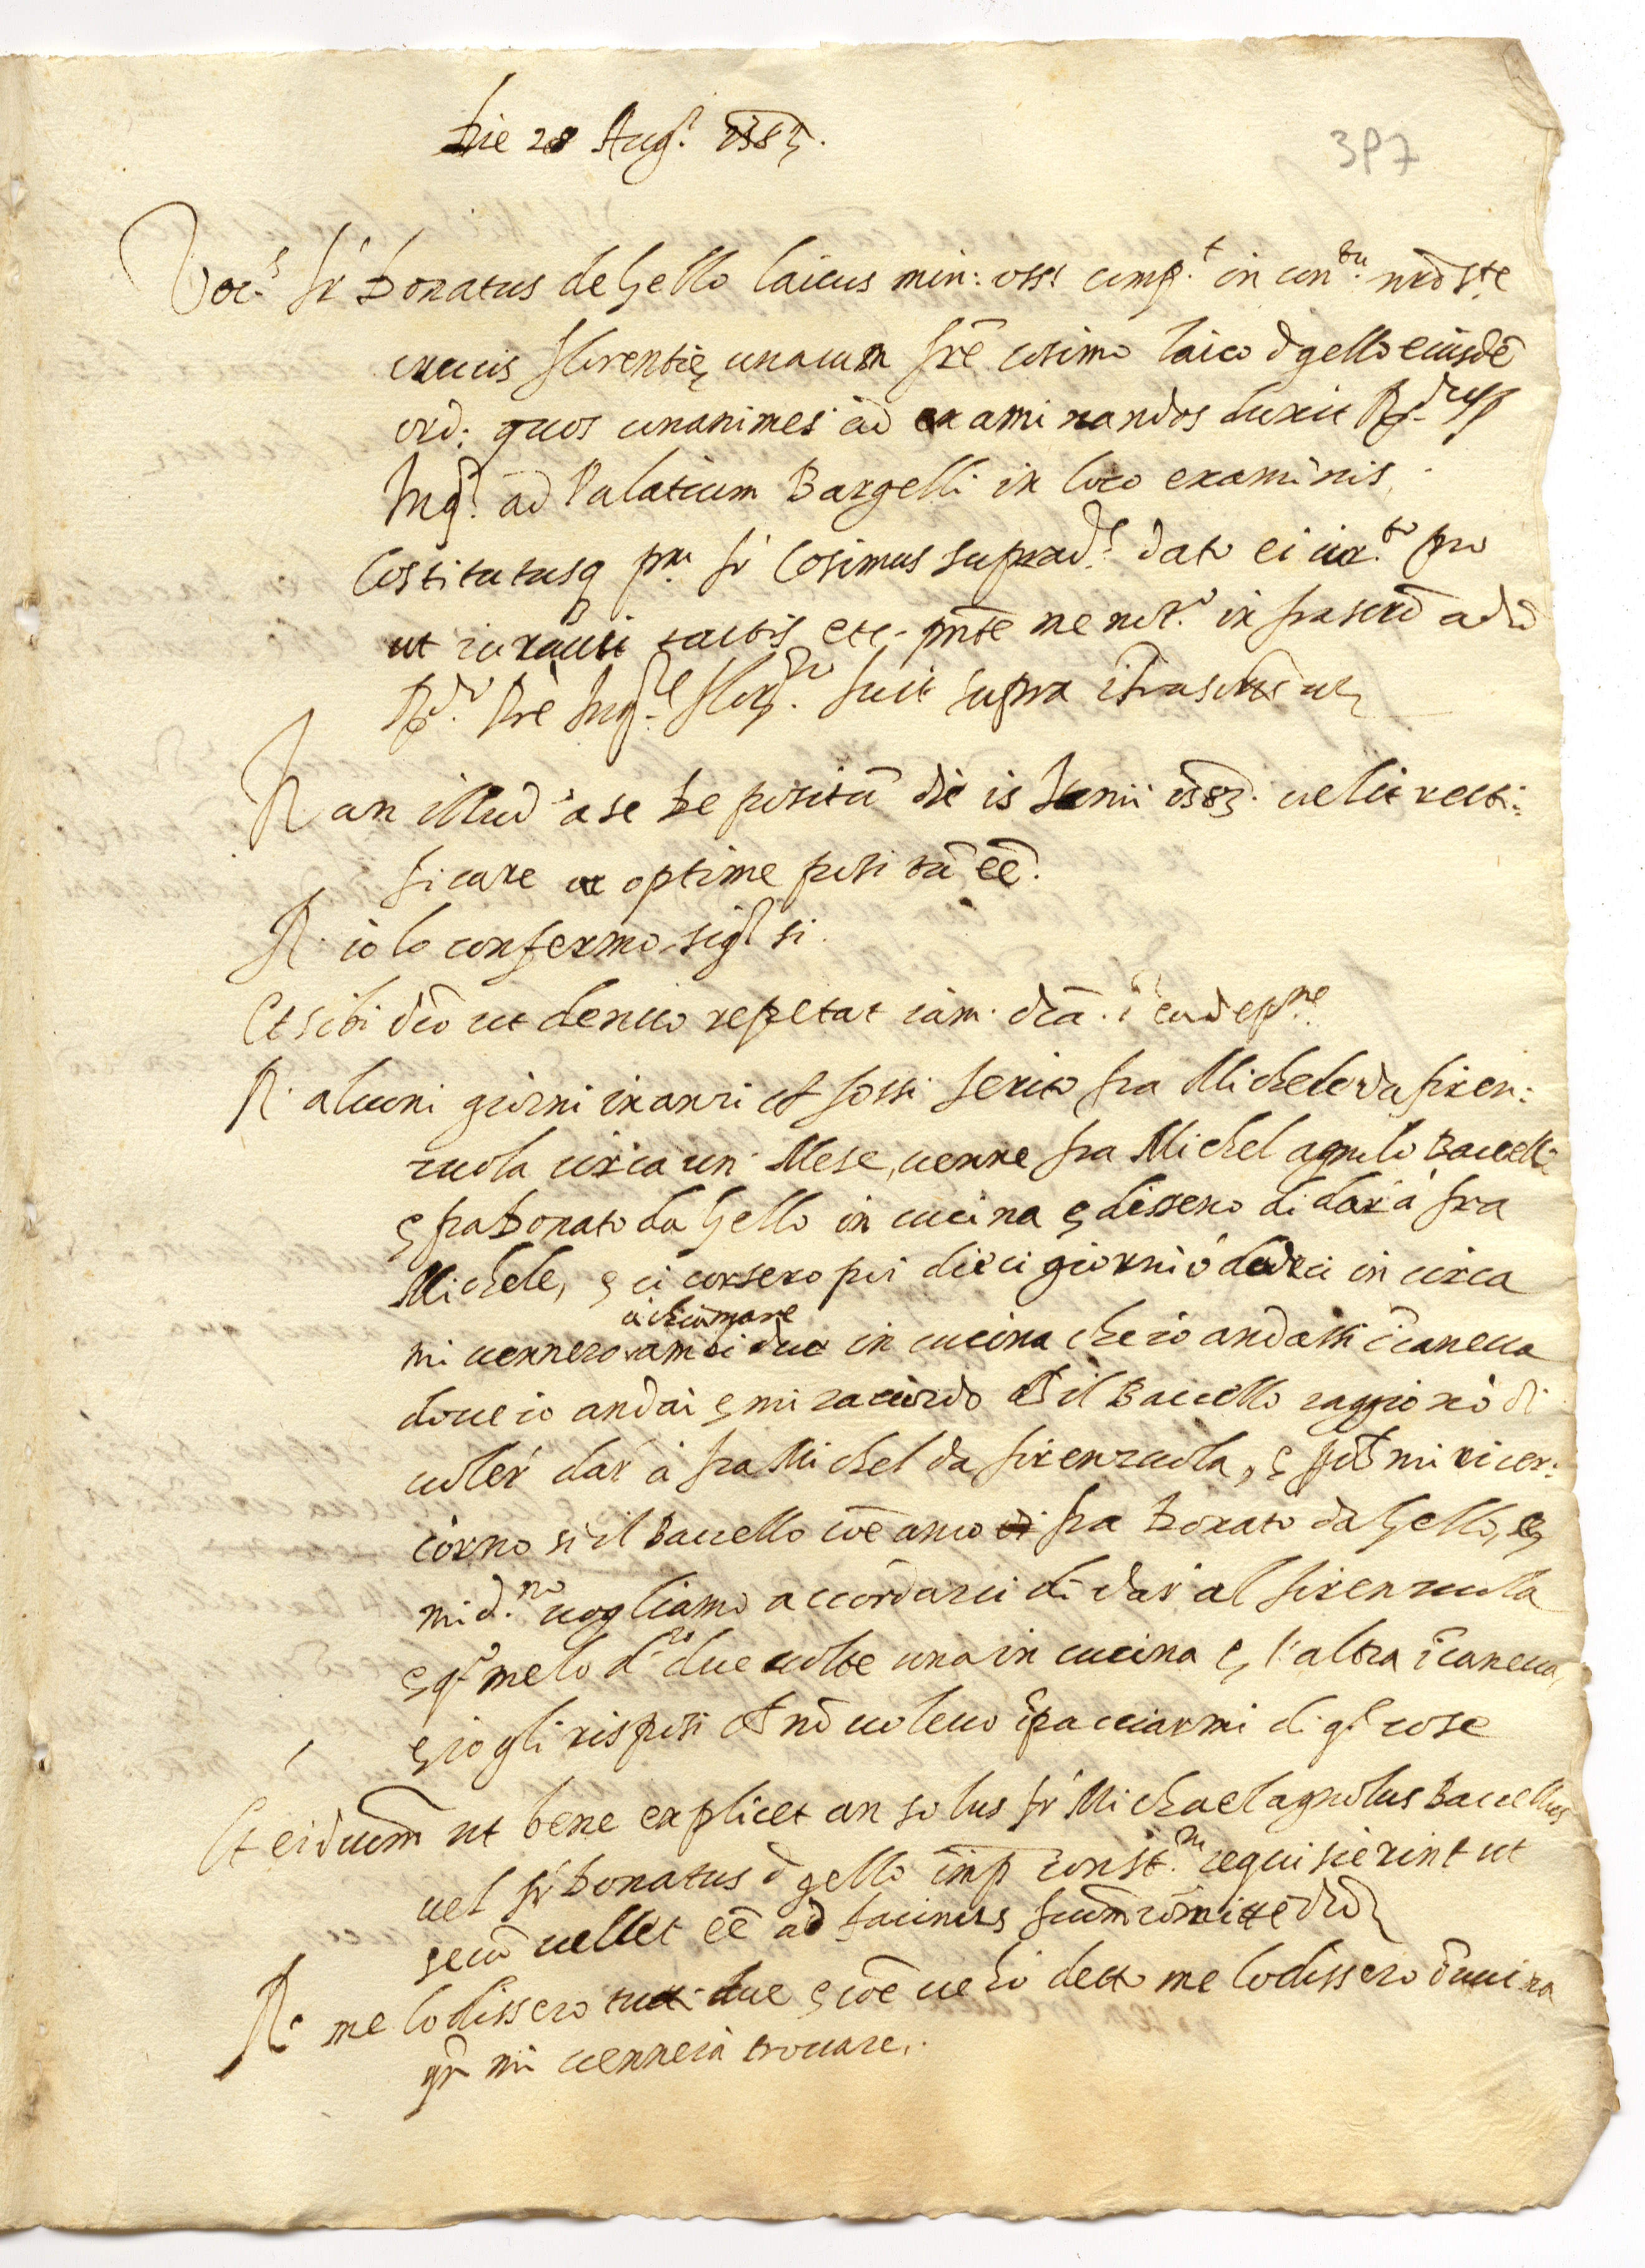 Die 28 Aug.ⁱ 1583.
397
Voc.ˢ fr Donatus de Gello laicus min: oss: comp.ᵗ in con.ᵗᵘ nrō Ste
crucis florentię, unacum frē cosimo laico d gello eiusdē
ord: quos unanimes ad examinandos duxit R.
Inq.ʳ ad Palatium Bargelli in loco examinis.
Costitutusq pᵐ fr Cosimus suprad.ˢ dato ei iur.ᵗᵒ pro
ut iuravit tactis etc. pn̄te me not.º infrascrō
R.ᵈᵒ Prē Inq.ʳᵉ flor.ⁿᵒ fuit supra
R an illud a se depositū die is Junii 1583. uelit recti:
ficare et optime positū eē.
R. io lo confermo sig.ʳ si.
Et sibi dcō ut denuo repetat iam dcā. i ead epⁿᵉ
R. alcuni giorni inanzi ch fossi ferito fra Michele da firen:
zuola circa un Mese, uenne fra Michel agnolo Baccelli
ę fra Donato da Gello in cucina ę dissero di dar à fra
Michele, ę ci corsero poi dieci giorni ó dodeci in circa
à chiamare
mi uennero ambi due in cucina che io andassi ī caneua
doue io andai ę mi racordo ch il Baccello raggionò di
uoler dar à fra Michel da firenzuola, ę poi mi ricer:
corno si il Baccello coē anco di fra Donato da Gello, ę
mi d.ⁿᵒ uogliamo accordarci di dar al firenzuola
ę qº me lo d.ʳᵒ due uolte una in cucina ę l'altra ī caneua,
ę io gli risposi ch nō uoleuo īpacciarmi di qˢᵗ cose
Et ei dictum ut bene explicet an solus fr Michaelagnolus Baccellus
uel fr Donatus d gello imp const.ᵐ requisierint ut
secū uellet eē ad facinus
R. me lo dissero tutti due ę coē ue ho detto me lo dissero ī cucina
qⁿ mi uennerà trouare.